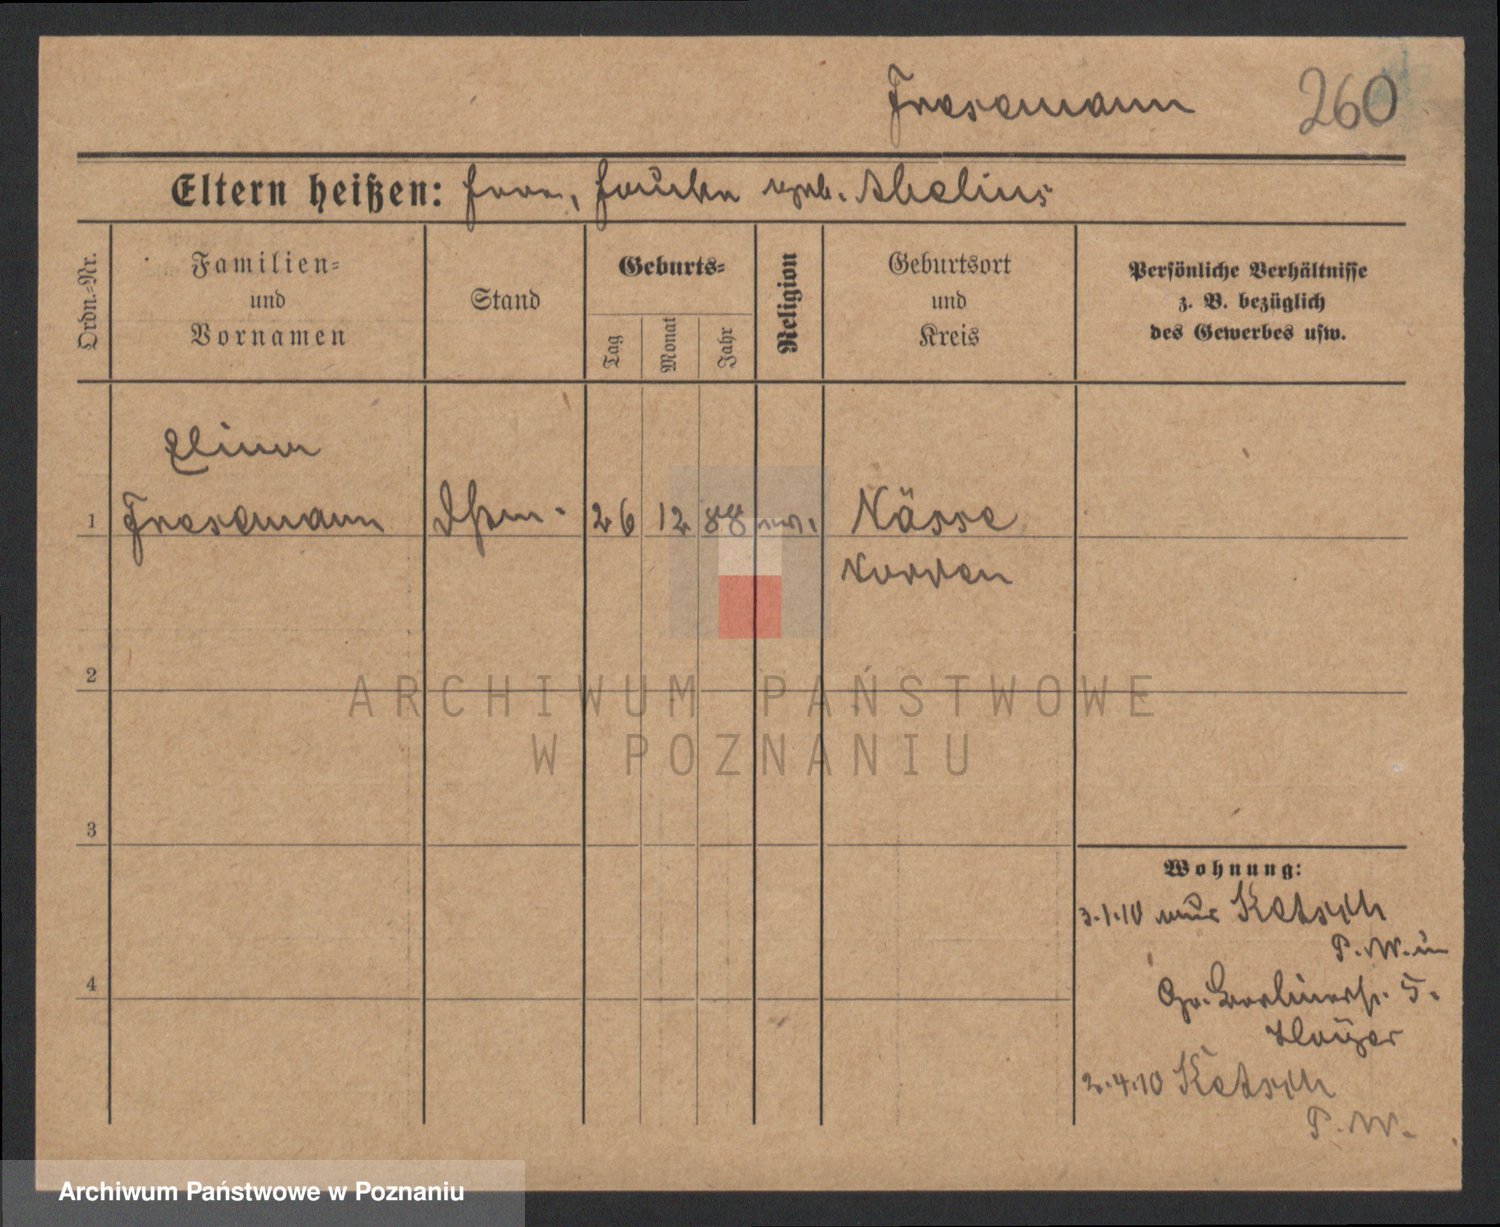 Fresemann 260
Eltern heißen: geb. Abelius
Ordn.=Nr.
Familien=
und
Vornamen
Stand
Geburts=
Tag
Monat
Jahr
Religion
Geburtsort
und
Kreis
Persönliche Verhältnisse
z. B. bezüglich
des Gewerbes usw.
1 Fresemann 26 12 88 Nässe
Norden
2
3
4
Wohnung:
3.1.10 aus Ketsch
P. W. in
Gr. Berlinerstr. 5.
2.4.10 Ketsch
P. W.
ARCHIWUM PAŃSTWOWE
W POZNANIU
Archiwum Państwowe w Poznaniu